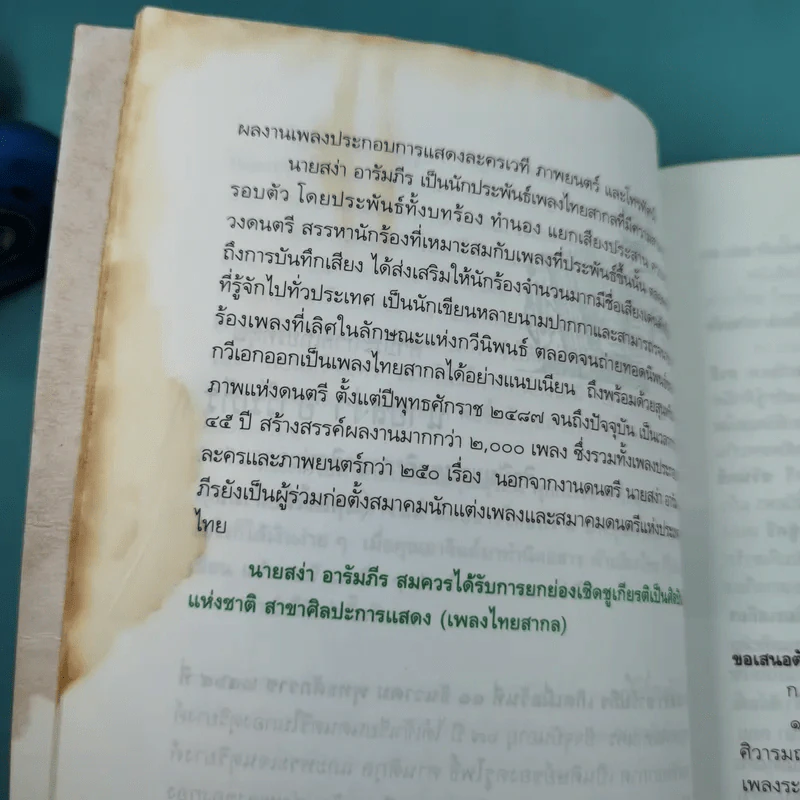 ผลงานเพลงประกอบการแสดงละครเวที ภาพยนตร์ และโทรทัศน์
นายสง่า อารัมภีร เป็นนักประพันธ์เพลงไทยสากลที่มีความ
รอบตัว โดยประพันธ์ทั้งบทร้อง ทำนอง แยกเสียงประสาน
วงดนตรี สรรหานักร้องที่เหมาะสมกับเพลงที่ประพันธ์ขึ้นนั้น
ถึงการบันทึกเสียง ได้ส่งเสริมให้นักร้องจำนวนมากมีชื่อเสียง
ที่รู้จักไปทั่วประเทศ เป็นนักเขียนหลายนามปากกาและสามารถ
ร้องเพลงที่เลิศในลักษณะแห่งกวีนิพนธ์ ตลอดจนถ่ายทอด
กวีเอกออกเป็นเพลงไทยสากลได้อย่างแนบเนียน ถึงพร้อมด้วย
ภาพแห่งดนตรี ตั้งแต่ปีพุทธศักราช ๒๔๘๗ จนถึงปัจจุบัน เป็นเวลา
๔๕ ปี สร้างสรรค์ผลงานมากกว่า ๒,๐๐๐ เพลง ซึ่งรวมทั้งเพลง
ละครและภาพยนตร์กว่า ๒๕๐ เรื่อง นอกจากงานดนตรี นายสง่า
ภีรยังเป็นผู้ร่วมก่อตั้งสมาคมนักแต่งเพลงและสมาคมดนตรีแห่ง
ไทย
นายสง่า อารัมภีร สมควรได้รับการยกย่องเชิดชูเกียรติเป็น
แห่งชาติ สาขาศิลปะการแสดง (เพลงไทยสากล)
ขอเสนอ
ก.
๑
เพลง